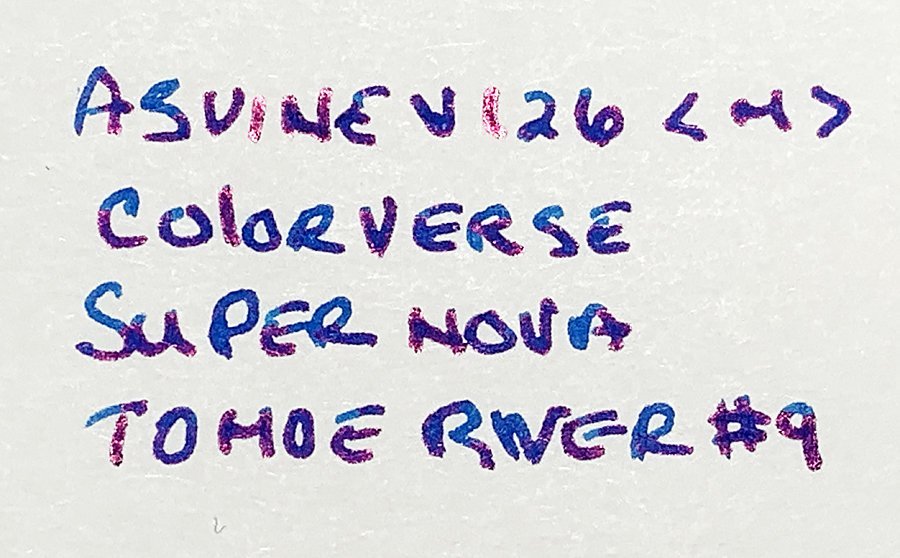 ASVINE V126 <M>
COLORVERSE
SUPER NOVA
TOMOE RIVER #9